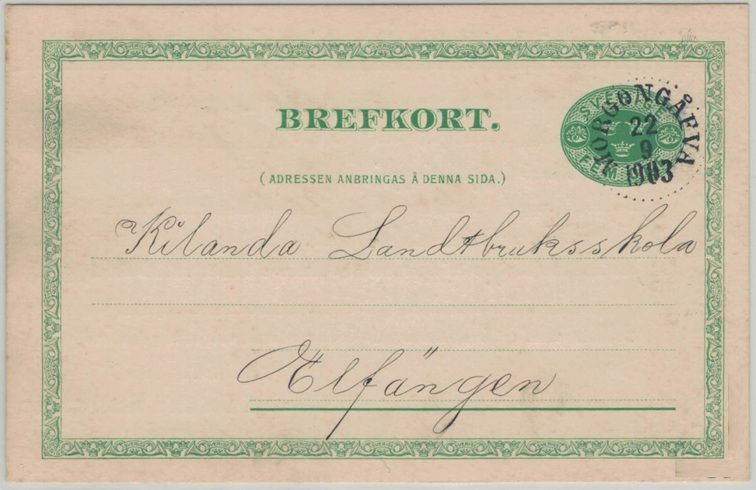 BREFKORT.
MORGONGÅFVA
22
9
1903
(ADRESSEN ANBRINGAS Å DENNA SIDA.)
Kilanda Landtbruksskola
Elfängen